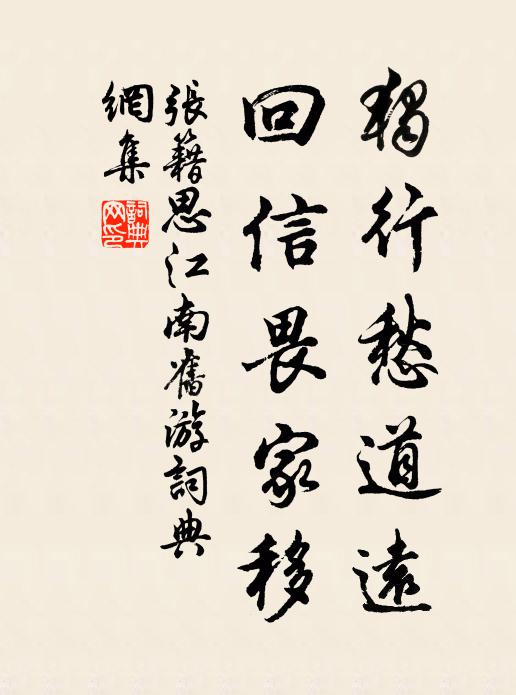 獨行愁道遠
回信畏家移
張籍思江南舊游詞典
網集
詞典
网印